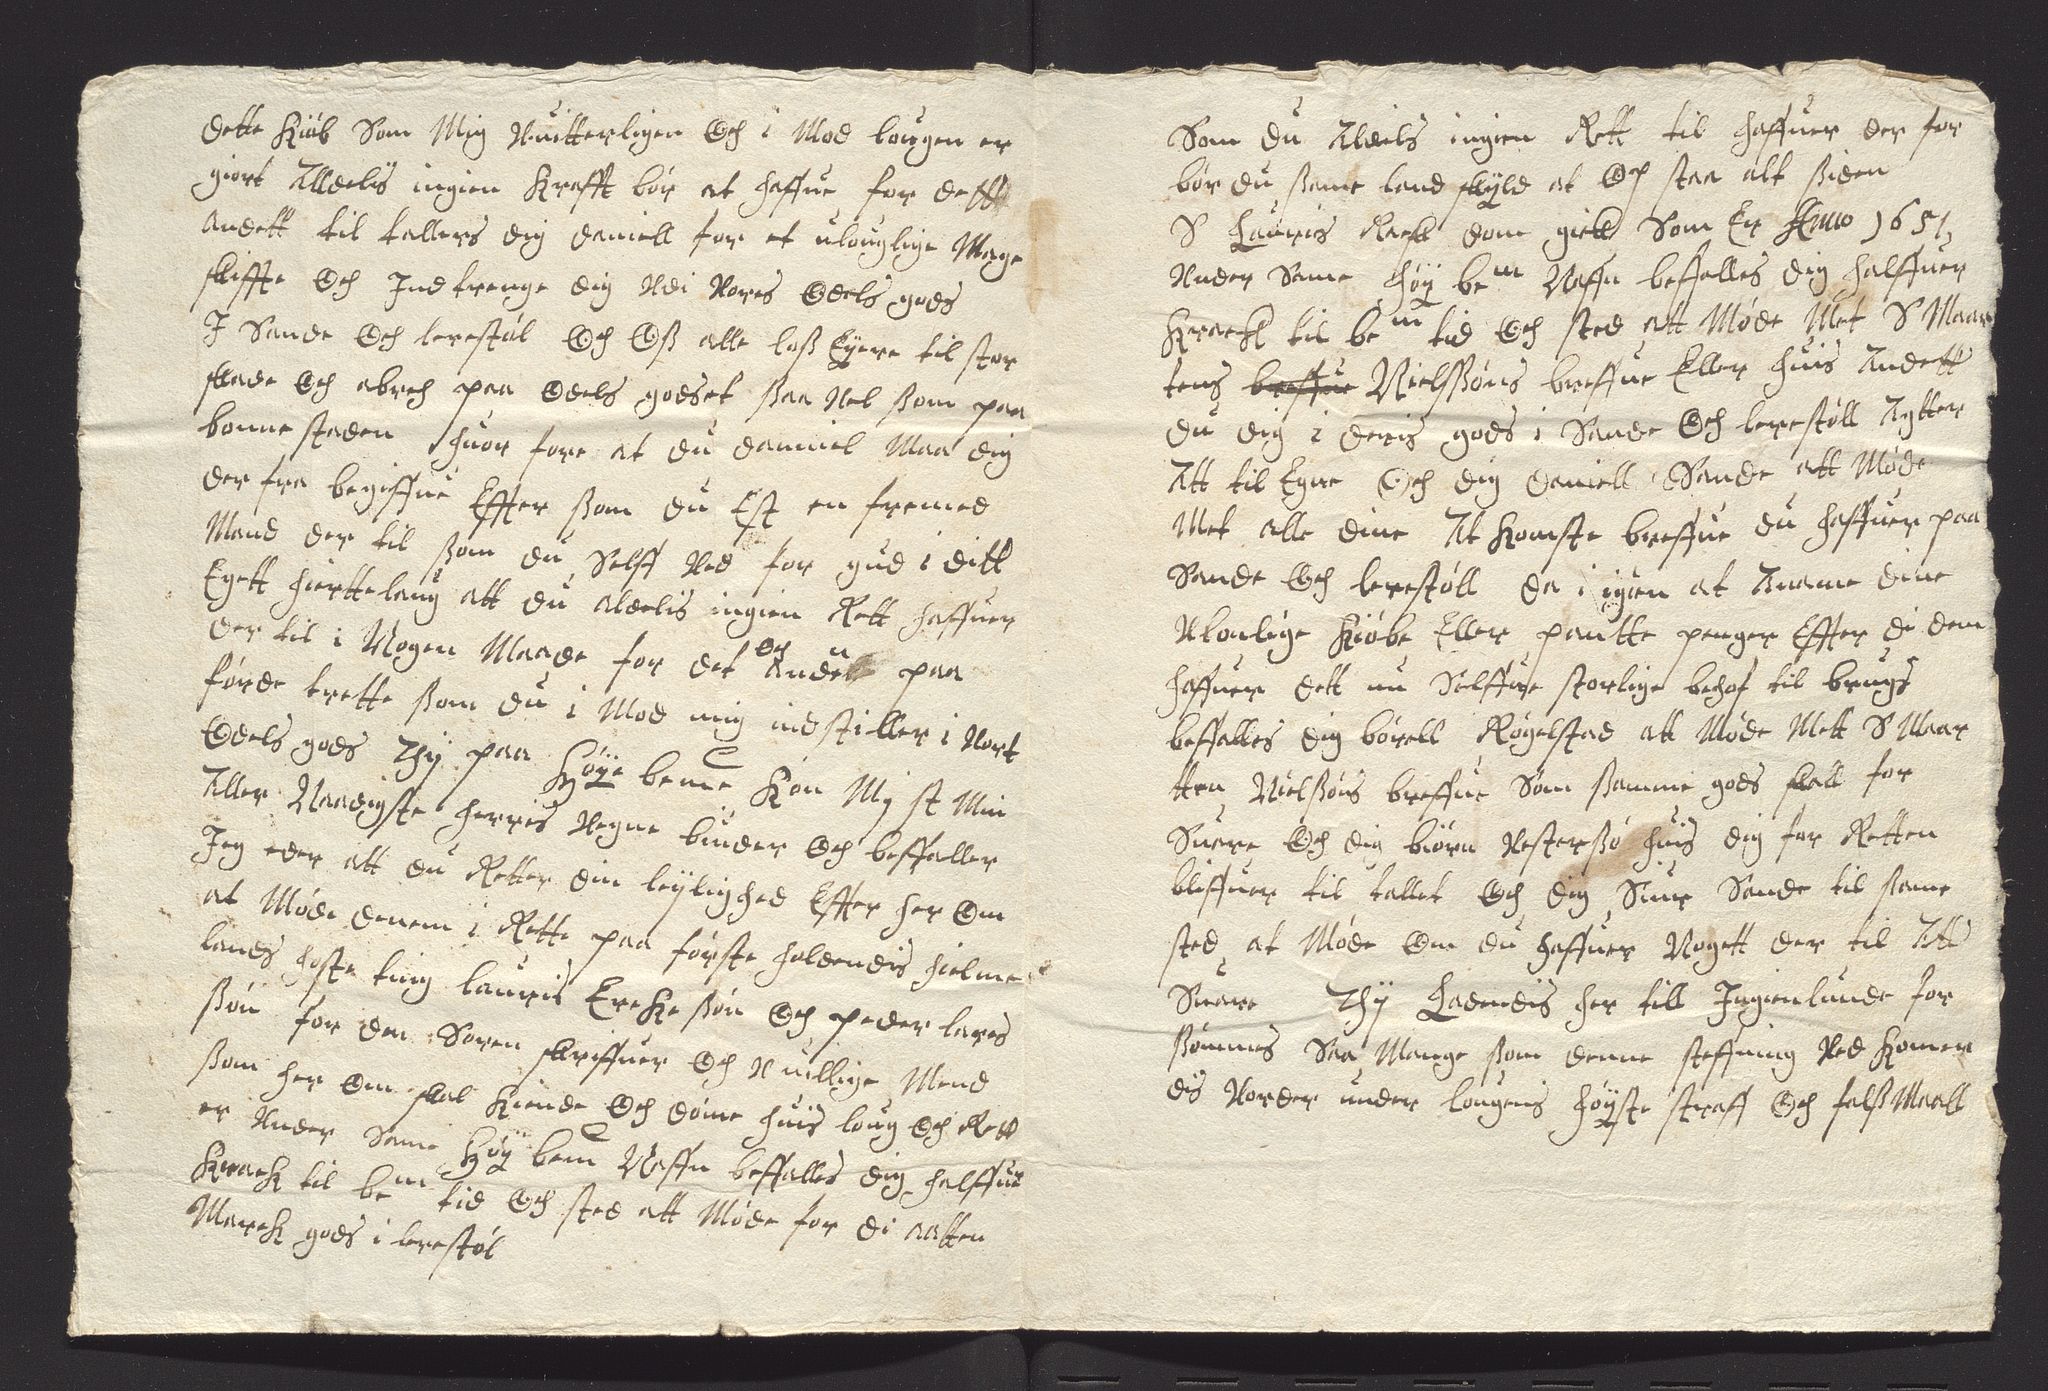 dette Kiøb Som Mig Vuitterligen Och i Mod lougen er
giort Alldelis ingien Krafft bør at haffue for dett
andett til tallers dig daniell for et ulouglige Mage
skiffte Och Indtrenge dig Vdi Vores Odels gods
I Sande Och lerestøl Och Oß alle loß Eÿere til stor
skade Och abrech paa Odels godset saa Vel som paa
bonne staden huor fore at du daniel Maa dig
der fra begiffue Effter som du Est en fremed
Mand der til som du Selff Ved for gud i ditt
Egett hiertte laug att du aldelis ingien Rett haffuer
der til i Nogen Maade for det Och Andett paa
førde trette som du i Mod mig indstiller i Vort
Odels gods Thÿ paa Høÿe bemte Kon Mÿ st Min
Aller Naadigste herris Vegne biuder Och beffaller
Jeg eder att du Retter din leÿlighed Effter her Om
at Møde denem i Rette paa første holdendis hielme
lands høste ting lauris Ereckesøn Och peder lares
søn for den Soren skriffuer Och Vuillige Mend
som her Om skal Kiende Och døme huis loug Och Rett
er Vnder Same Høÿ bem Naffn beffalles dig halffuer
Krack til bem tid Och sted att Møde for di aatten
Marck gods i lerestøl
Som du Aldeels ingien Rett til haffuer der for
bør du same land skÿld at Och staa alt siden
S Lauris Rack dom gick Som Er Anno 1651
Vnder Same høÿ bem Naffn beffalles dig halffuer
Krack til bem tid Och sted att Møde Met S Maar
tens breffue Nielssøns breffue Eller huis Andett
du dig i deris gods i Sande Och lerestøll Agtter
Att til Egne Och dig daniell Sande att Møde
Met alle dine At Komste breffue du haffuer paa
Sande Och lerestøll da i igien at Aname dine
Vlonlige Kiøbe Eller pantte penger Effter di dem
haffuer dett nu Selffue storlige behof til brugs
beffalles dig børell Røgelstad att Møde Mett S Maar
tten Nielsøns breffue Som samme gods skall for
Suare Och dig biørn Vestersø huis dig for Retten
bliffuer til tallet Och dig Siur Sande til same
sted at Møde Om du haffuer Nogett der til Att
Suare Thÿ Ladendis her till Ingienlunde for
sømmes Saa Mange som denne steffning Ved Komen
dis Vorder under lougens høÿste straff Och falß Maall